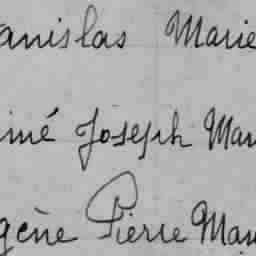 anislas Marie
imé Joseph Mar
gène Pierre Mar